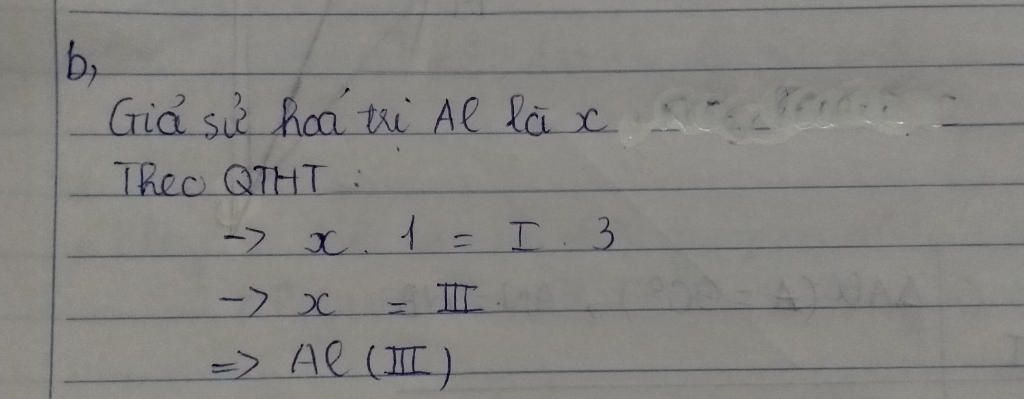 b,
Giả sử hoá trị Al là x
Theo QTHT :
-> x . 1 = I . 3
-> x = III
=> Al (III)